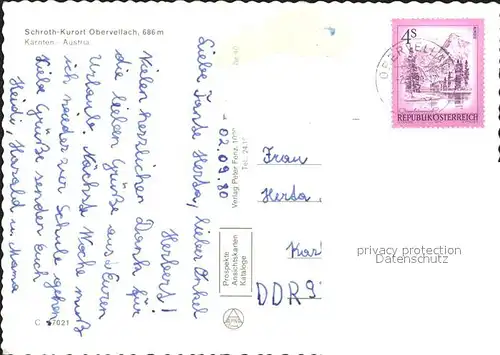 Schroth-Kurort Obervellach, 686 m
Kärnten - Austria
02.09.80
Liebe Tante Herta, lieber Onkel
Herbert!
Vielen herzlichen Dank für
die lieben Grüße aus Euren
Urlaub. Nächste Woche muß
ich wieder zur Schule gehen.
Liebe Grüße senden Euch
Heidi Harald u. Mama
C 57021
Verlag Peter Fenz,
Tel.
Prospekte
Ansichtskarten
Kataloge
4S
REPUBLIK ÖSTERREICH
Frau
Herta
Kar
DDR 9
privacy protection
Datenschutz